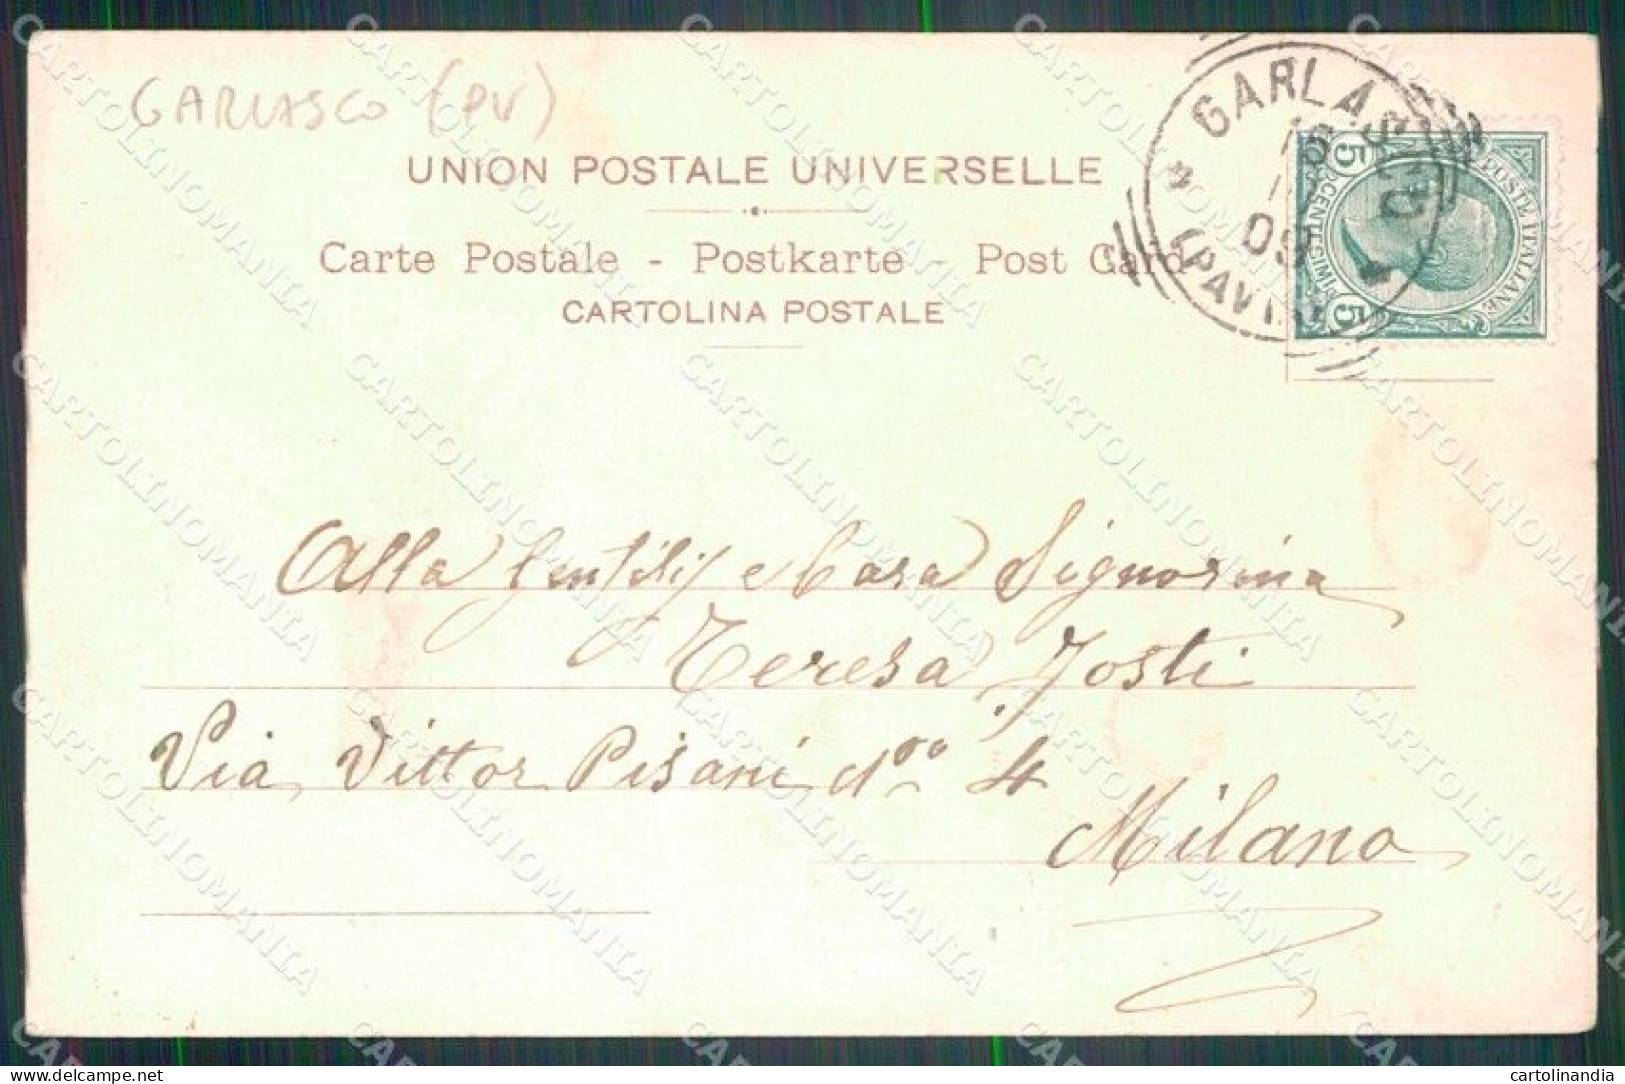 GARLASCO (PV)
UNION POSTALE UNIVERSELLE
Carte Postale - Postkarte - Post Card
CARTOLINA POSTALE
GARLASCO
(PAVIA)
POSTE ITALIANE
5 CENTESIMI 5
Alla Gentilis e Cara Signorina
Teresa Josti
Via Vittor Pisani 4
Milano
CARTOLINOMANIA
cartolinandia